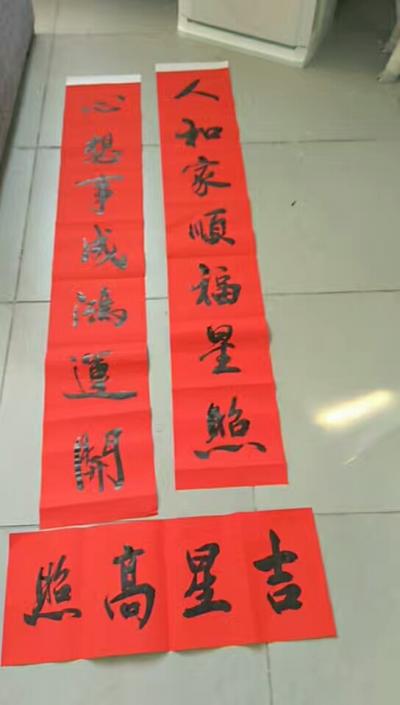 人和家順福星照
心想事成鴻運開
吉星高照